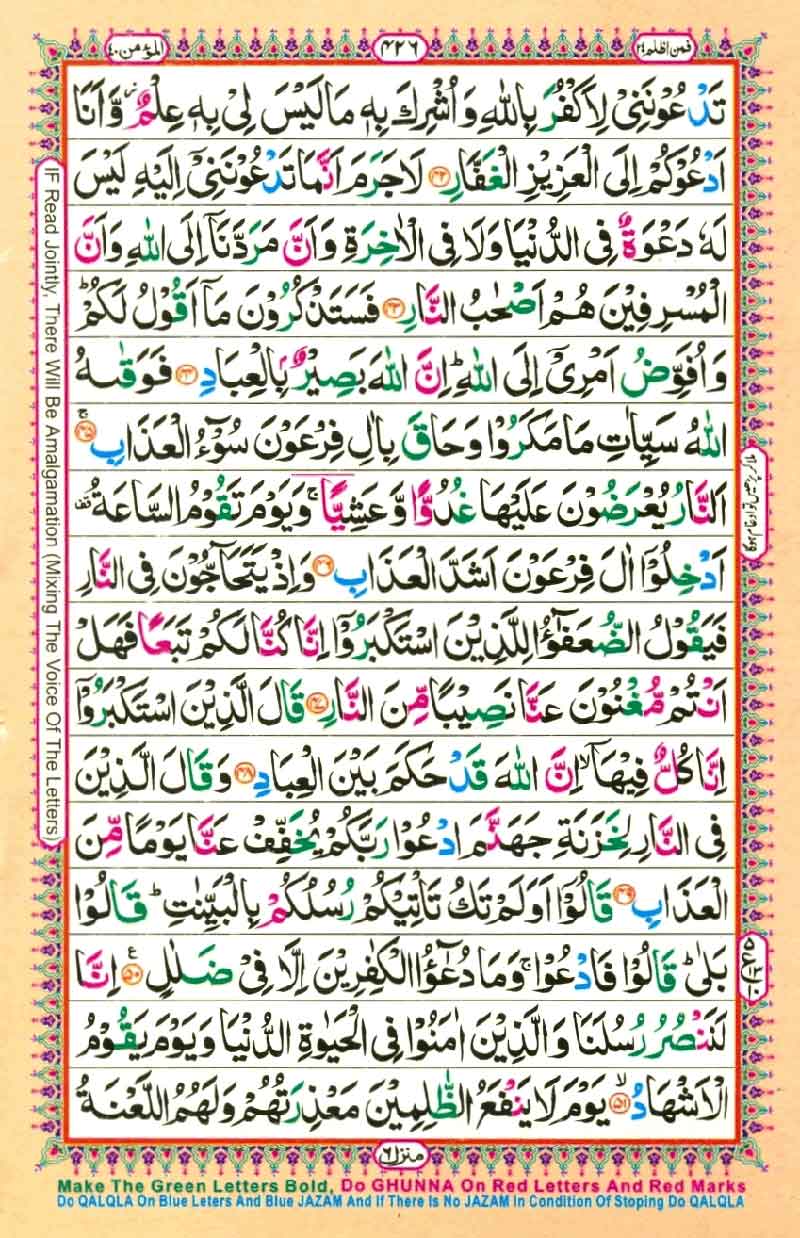 المؤمن ٤٠
٤٢٦
فمن اظلم ٢٤
تَدْعُوْنَنِیْ لِاَكْفُرَ بِاللّٰهِ وَ اُشْرِكَ بِهٖ مَا لَیْسَ لِیْ بِهٖ عِلْمٌ٘ وَّ اَنَا
اَدْعُوْكُمْ اِلَى الْعَزِیْزِ الْغَفَّارِ ﴿۴۲﴾ لَا جَرَمَ اَنَّمَا تَدْعُوْنَنِیْۤ اِلَیْهِ لَیْسَ
لَهٗ دَعْوَةٌ فِی الدُّنْیَا وَ لَا فِی الْاٰخِرَةِ وَ اَنَّ مَرَدَّنَاۤ اِلَى اللّٰهِ وَ اَنَّ
الْمُسْرِفِیْنَ هُمْ اَصْحٰبُ النَّارِ ﴿۴۳﴾ فَسَتَذْكُرُوْنَ مَاۤ اَقُوْلُ لَكُمْؕ
وَ اُفَوِّضُ اَمْرِیْۤ اِلَى اللّٰهِؕ اِنَّ اللّٰهَ بَصِیْرٌۢ بِالْعِبَادِ ﴿۴۴﴾ فَوَقٰىهُ
اللّٰهُ سَیِّاٰتِ مَا مَكَرُوْا وَ حَاقَ بِاٰلِ فِرْعَوْنَ سُوْٓءُ الْعَذَابِ ﴿۴۵﴾ۚ
اَلنَّارُ یُعْرَضُوْنَ عَلَیْهَا غُدُوًّا وَّ عَشِیًّاۚ وَ یَوْمَ تَقُوْمُ السَّاعَةُ۫
اَدْخِلُوْۤا اٰلَ فِرْعَوْنَ اَشَدَّ الْعَذَابِ ﴿۴۶﴾ وَ اِذْ یَتَحَآجُّوْنَ فِی النَّارِ
فَیَقُوْلُ الضُّعَفٰٓؤُا لِلَّذِیْنَ اسْتَكْبَرُوْۤا اِنَّا كُنَّا لَكُمْ تَبَعًا فَهَلْ
اَنْتُمْ مُّغْنُوْنَ عَنَّا نَصِیْبًا مِّنَ النَّارِ ﴿۴۷﴾ قَالَ الَّذِیْنَ اسْتَكْبَرُوْۤا
اِنَّا كُلٌّ فِیْهَاۤۙ اِنَّ اللّٰهَ قَدْ حَكَمَ بَیْنَ الْعِبَادِ ﴿۴۸﴾ وَ قَالَ الَّذِیْنَ
فِی النَّارِ لِخَزَنَةِ جَهَنَّمَ ادْعُوْا رَبَّكُمْ یُخَفِّفْ عَنَّا یَوْمًا مِّنَ
الْعَذَابِ ﴿۴۹﴾ قَالُوْۤا اَوَ لَمْ تَكُ تَاْتِیْكُمْ رُسُلُكُمْ بِالْبَیِّنٰتِؕ قَالُوْا
بَلٰىؕ قَالُوْا فَادْعُوْاۚ وَ مَا دُعٰٓؤُا الْكٰفِرِیْنَ اِلَّا فِیْ ضَلٰلٍ ﴿۵۰﴾ ع اِنَّا
لَنَنْصُرُ رُسُلَنَا وَ الَّذِیْنَ اٰمَنُوْا فِی الْحَیٰوةِ الدُّنْیَا وَ یَوْمَ یَقُوْمُ
الْاَشْهَادُ ﴿۵۱﴾ۙ یَوْمَ لَا یَنْفَعُ الظّٰلِمِیْنَ مَعْذِرَتُهُمْ وَ لَهُمُ اللَّعْنَةُ
منزل ٦
IF Read Jointly, There Will Be Amalgamation (Mixing The Voice Of The Letters)
Make The Green Letters Bold, Do GHUNNA On Red Letters And Red Marks
Do QALQLA On Blue Leters And Blue JAZAM And If There Is No JAZAM In Condition Of Stoping Do QALQLA